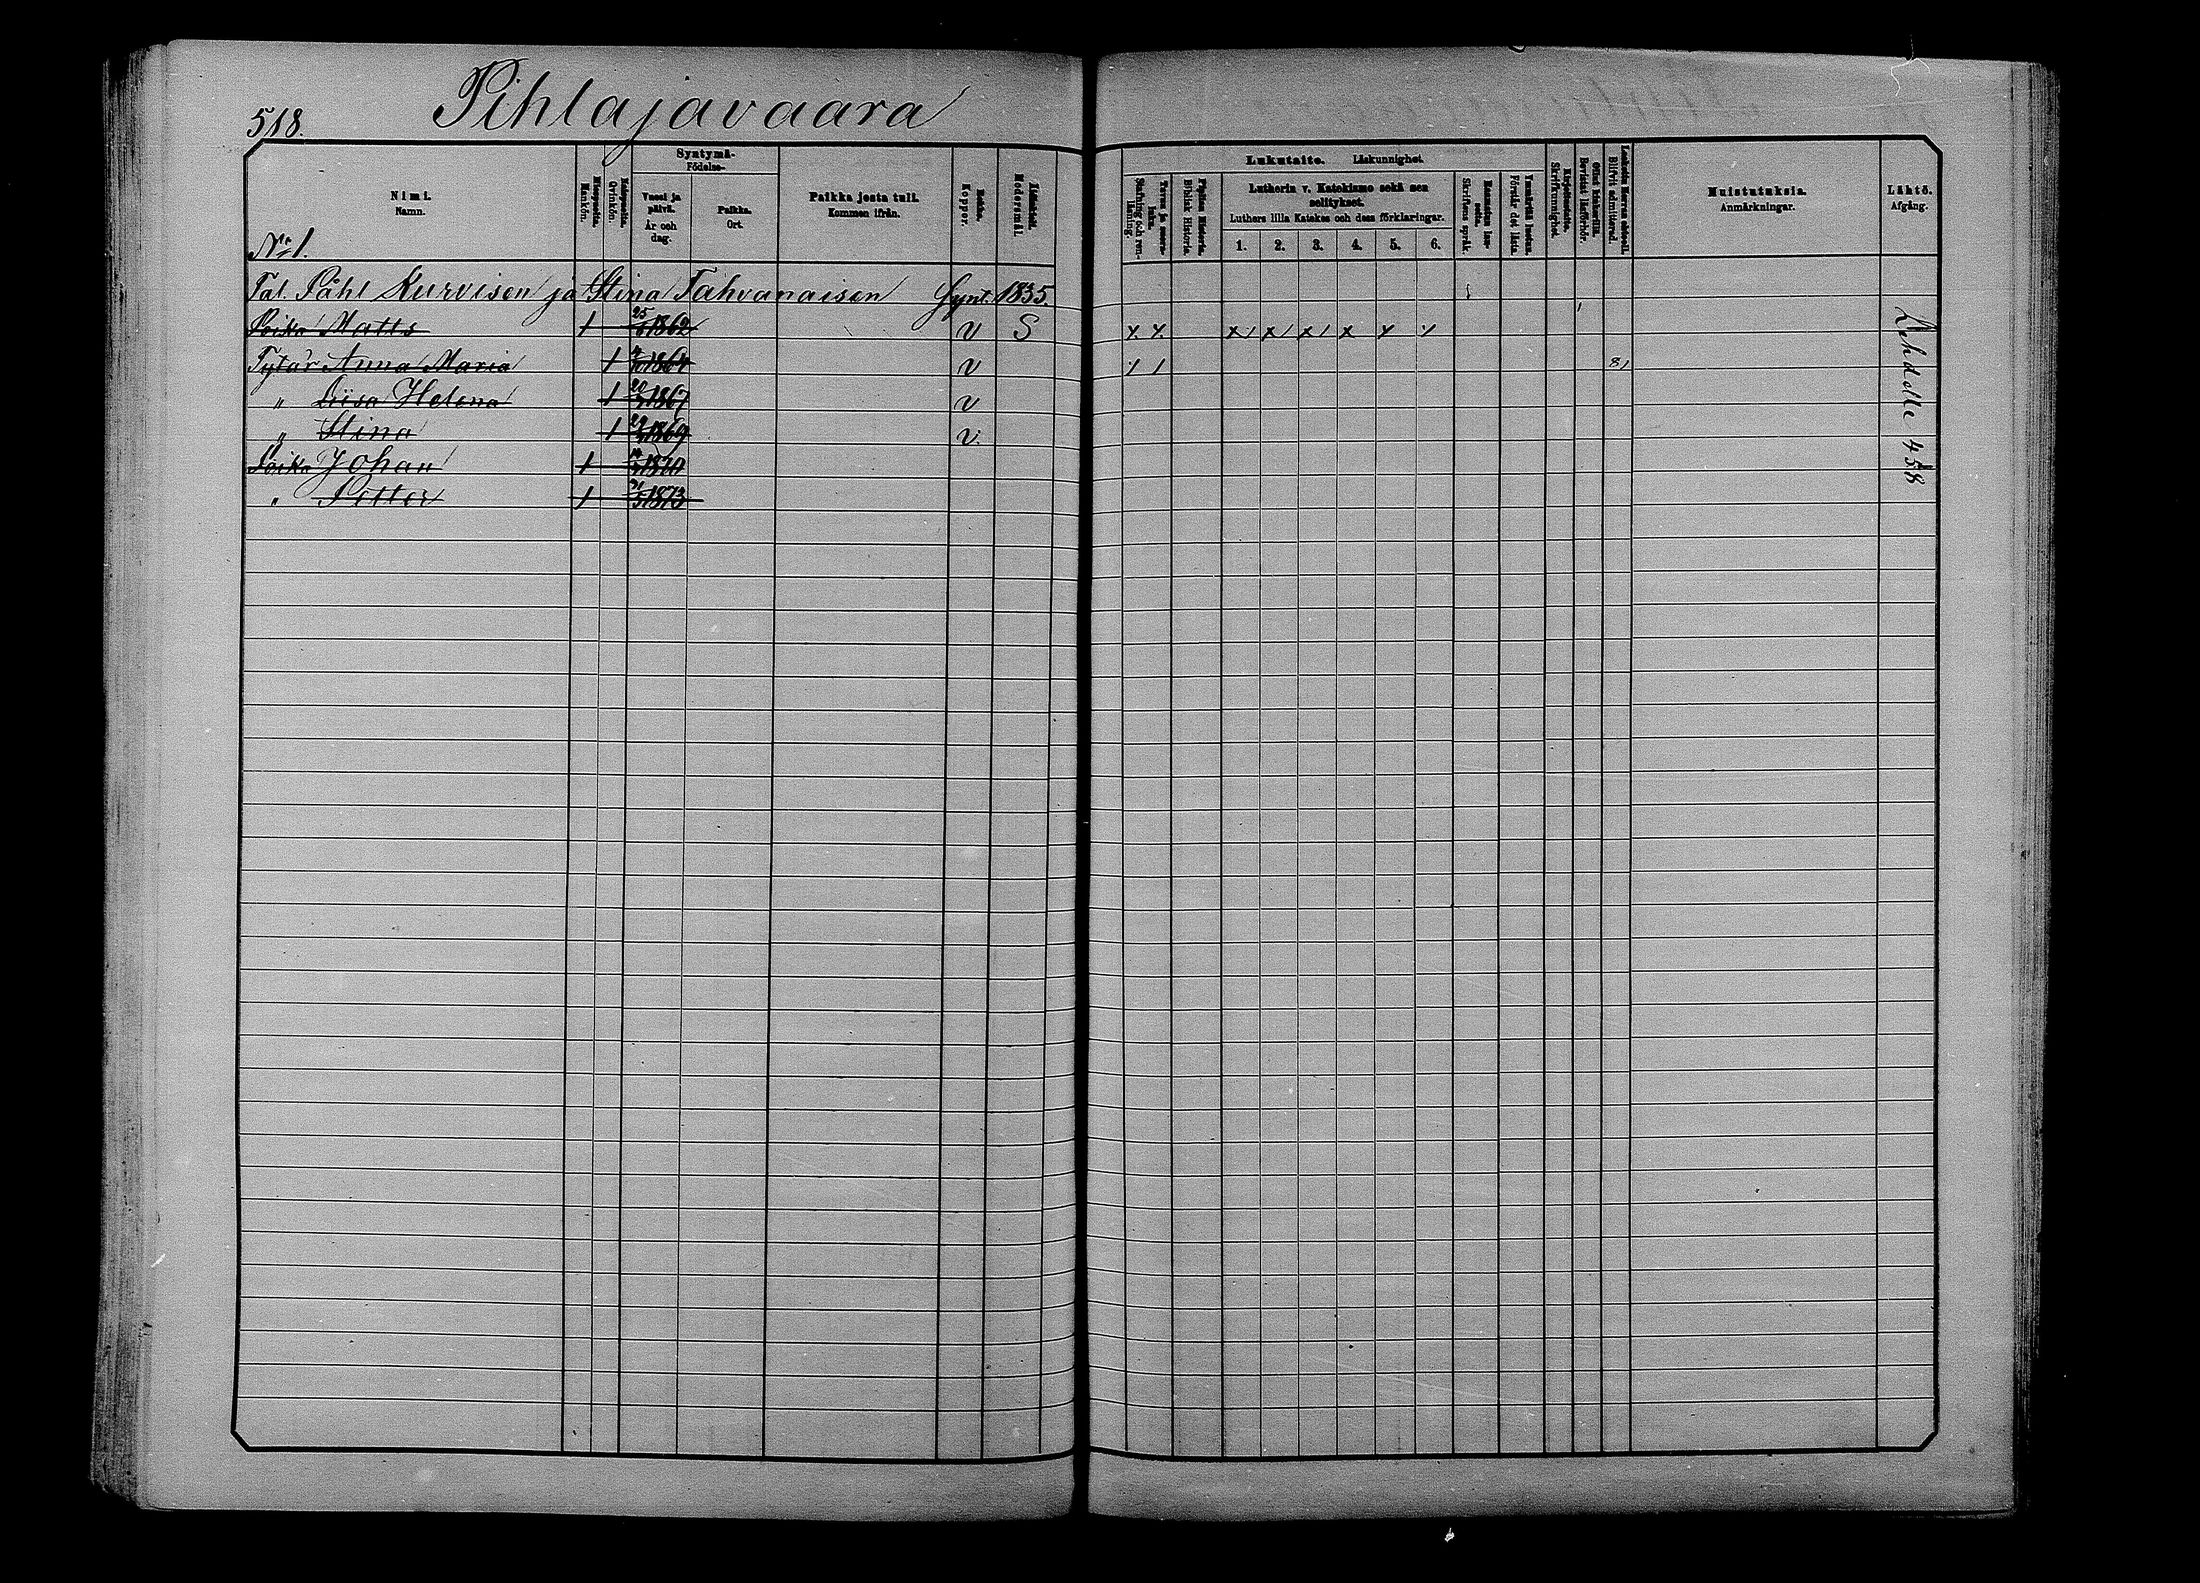 518.
Pihlajavaara
Nimi.
Namn.
Miespuolia.
Mankön.
Naispuolia.
Qvinkön.
Syntymä-
Födelse-
Vuosi ja päivä.
År och dag.
Paikka.
Ort.
Paikka josta tuli.
Kommen ifrån.
Rokko.
Koppor.
Äidinkieli.
Modersmål.
Lukutaito. Läskunnighet.
Tavuu ja suoraluku.
Stafning och renläsning.
Piplian Historia.
Biblisk Historia.
Lutherin v. Katekismo sekä sen selitykset.
Luthers lilla Katekes och dess förklaringar.
1. 2. 3. 4. 5. 6.
Skriftens språk.
Ymmärtää luetun.
Förstår det lästa.
Kirjoitustaito.
Skrifkunnighet.
Ollut lukusilla.
Bevistat läsförhör.
Blifvit admitterad.
Muistutuksia.
Anmärkningar.
Lähtö.
Afgång.
No 1.
Tal. Påhl Kurvisen ja Stina Tahvanaisen Synt. 1835.
Poika Matts 1 25 1862 v S x. x. x/ x/ x/ x x x
Tytär Anna Maria 1 1864 v 1 1 81
" Liisa Helena 1 20 1867 v
" Stina 1 29 1869 v.
Poika Johan 1 1870
" Petter 1 31/5 1873
Lehdelle 458